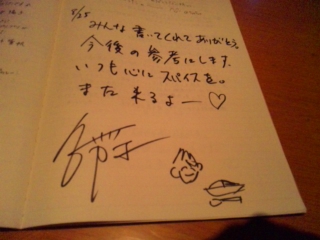 5/25
みんな書いてくれてありがとう。
今後の参考にします。
いつも心にスパイスを。
また来るよー♡